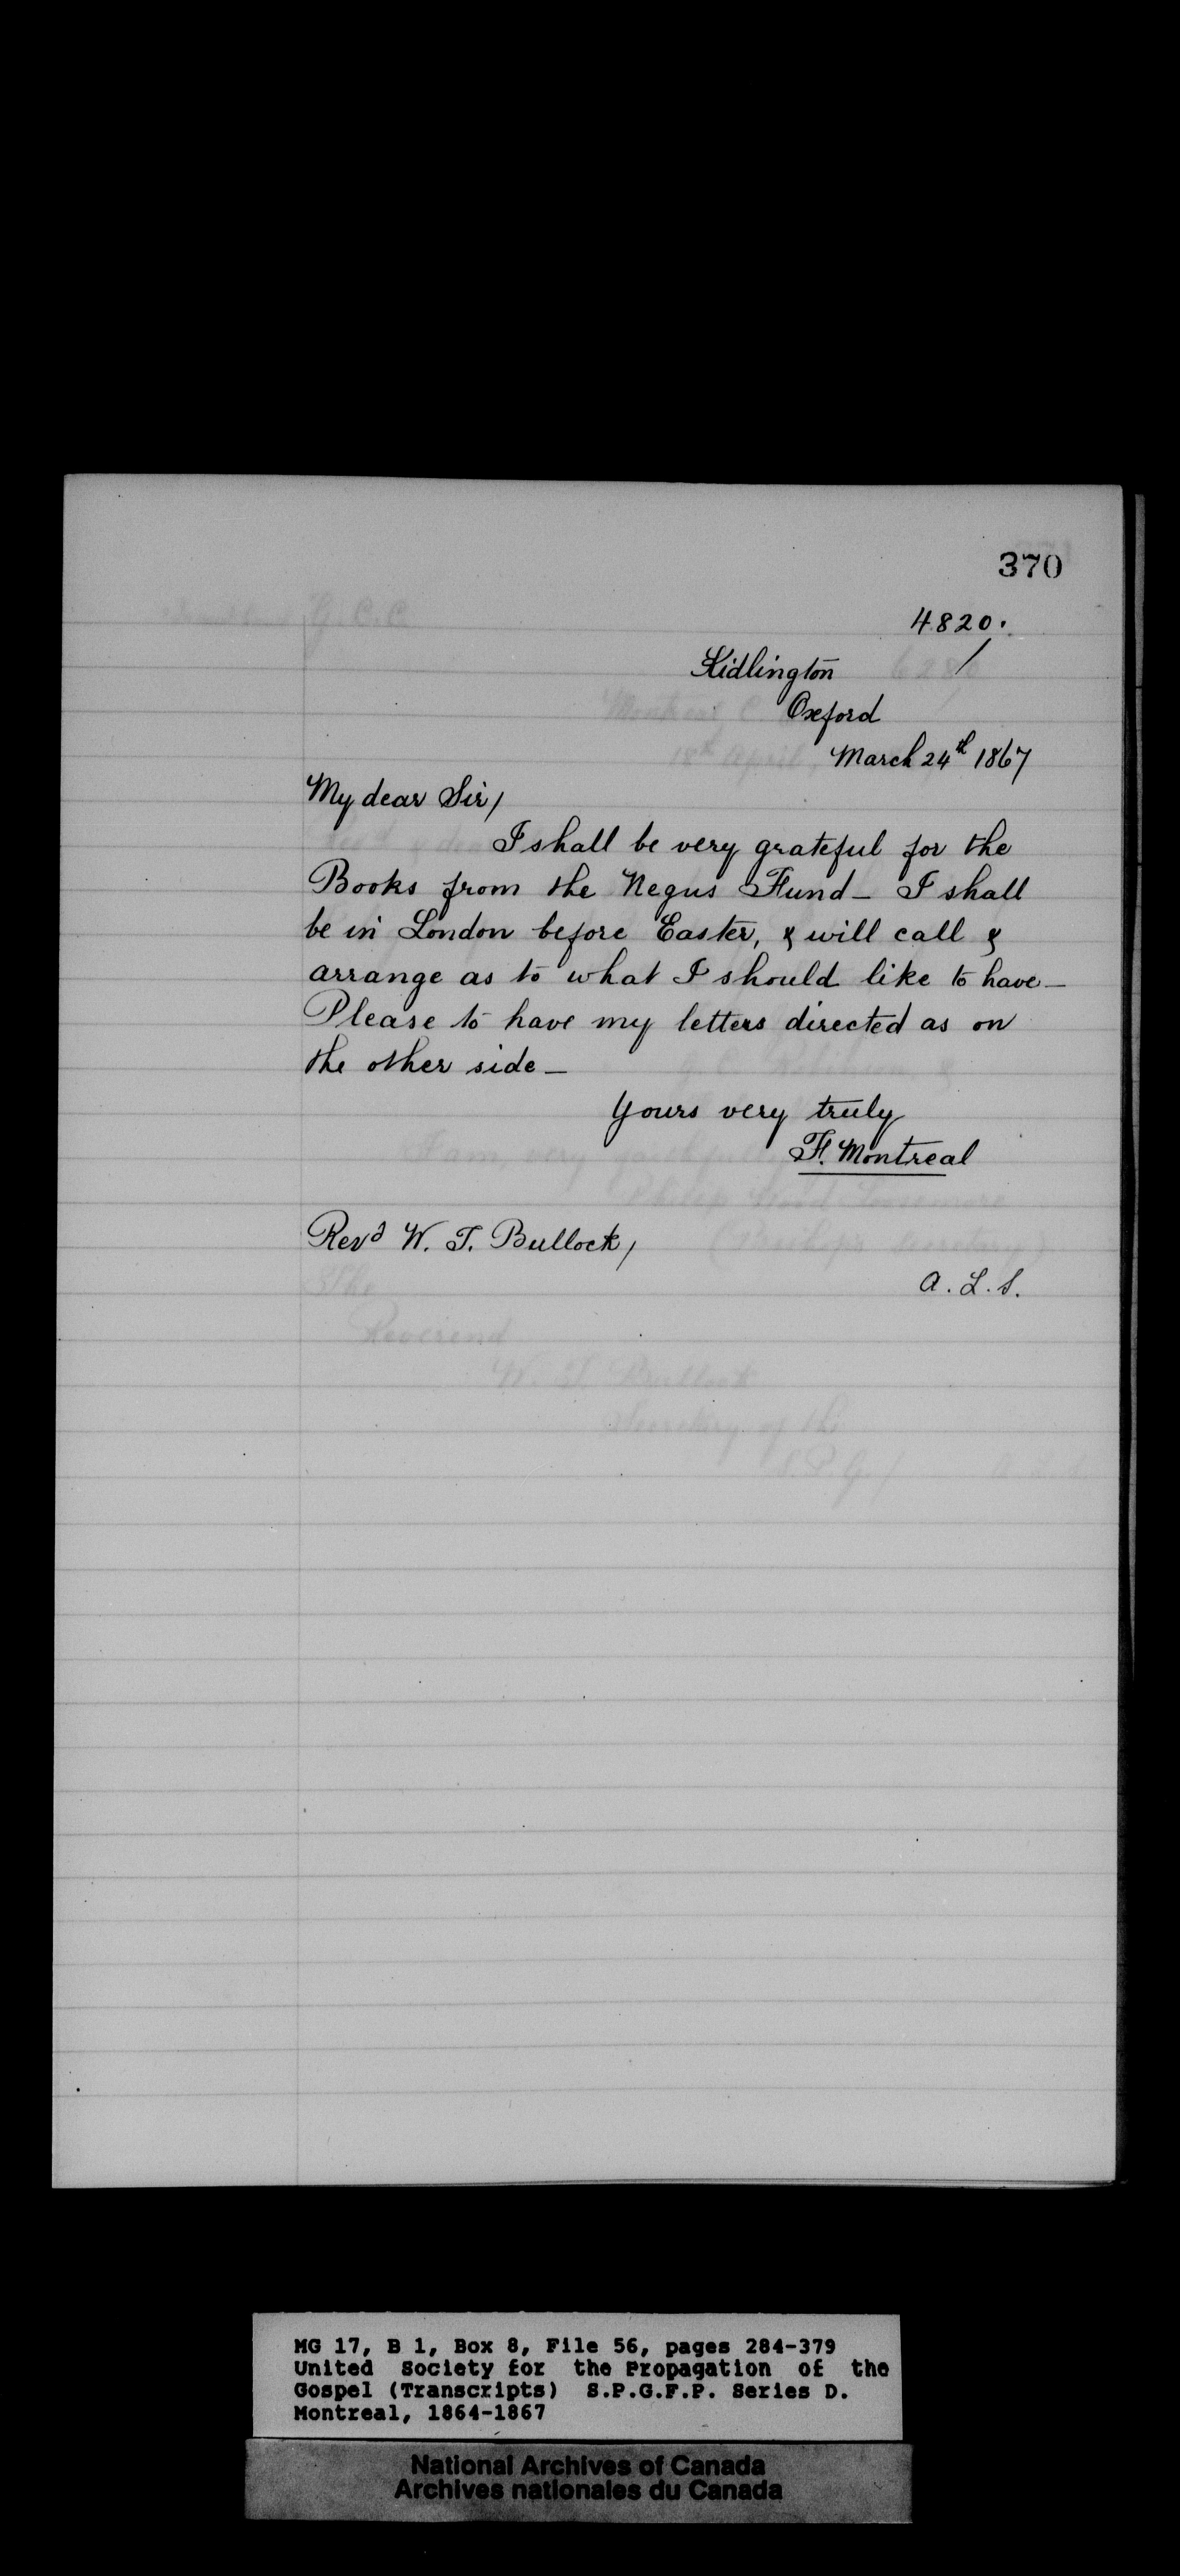 370
4820.
Kidlington /
Oxford
March 24th 1867
My dear Sir/
I shall be very grateful for the
Books from the Negus Fund_ I shall
be in London before Easter, & will call &
arrange as to what I should like to have_
Please to have my letters directed as on
the other side_
Yours very truly
F. Montreal
Revd W. T. Bullock/
A. L. S.
MG 17, B 1, Box 8, File 56, pages 284-379
United Society for the Propagation of the
Gospel (Transcripts) S.P.G.F.P. Series D.
Montreal, 1864-1867
National Archives of Canada
Archives nationales du Canada